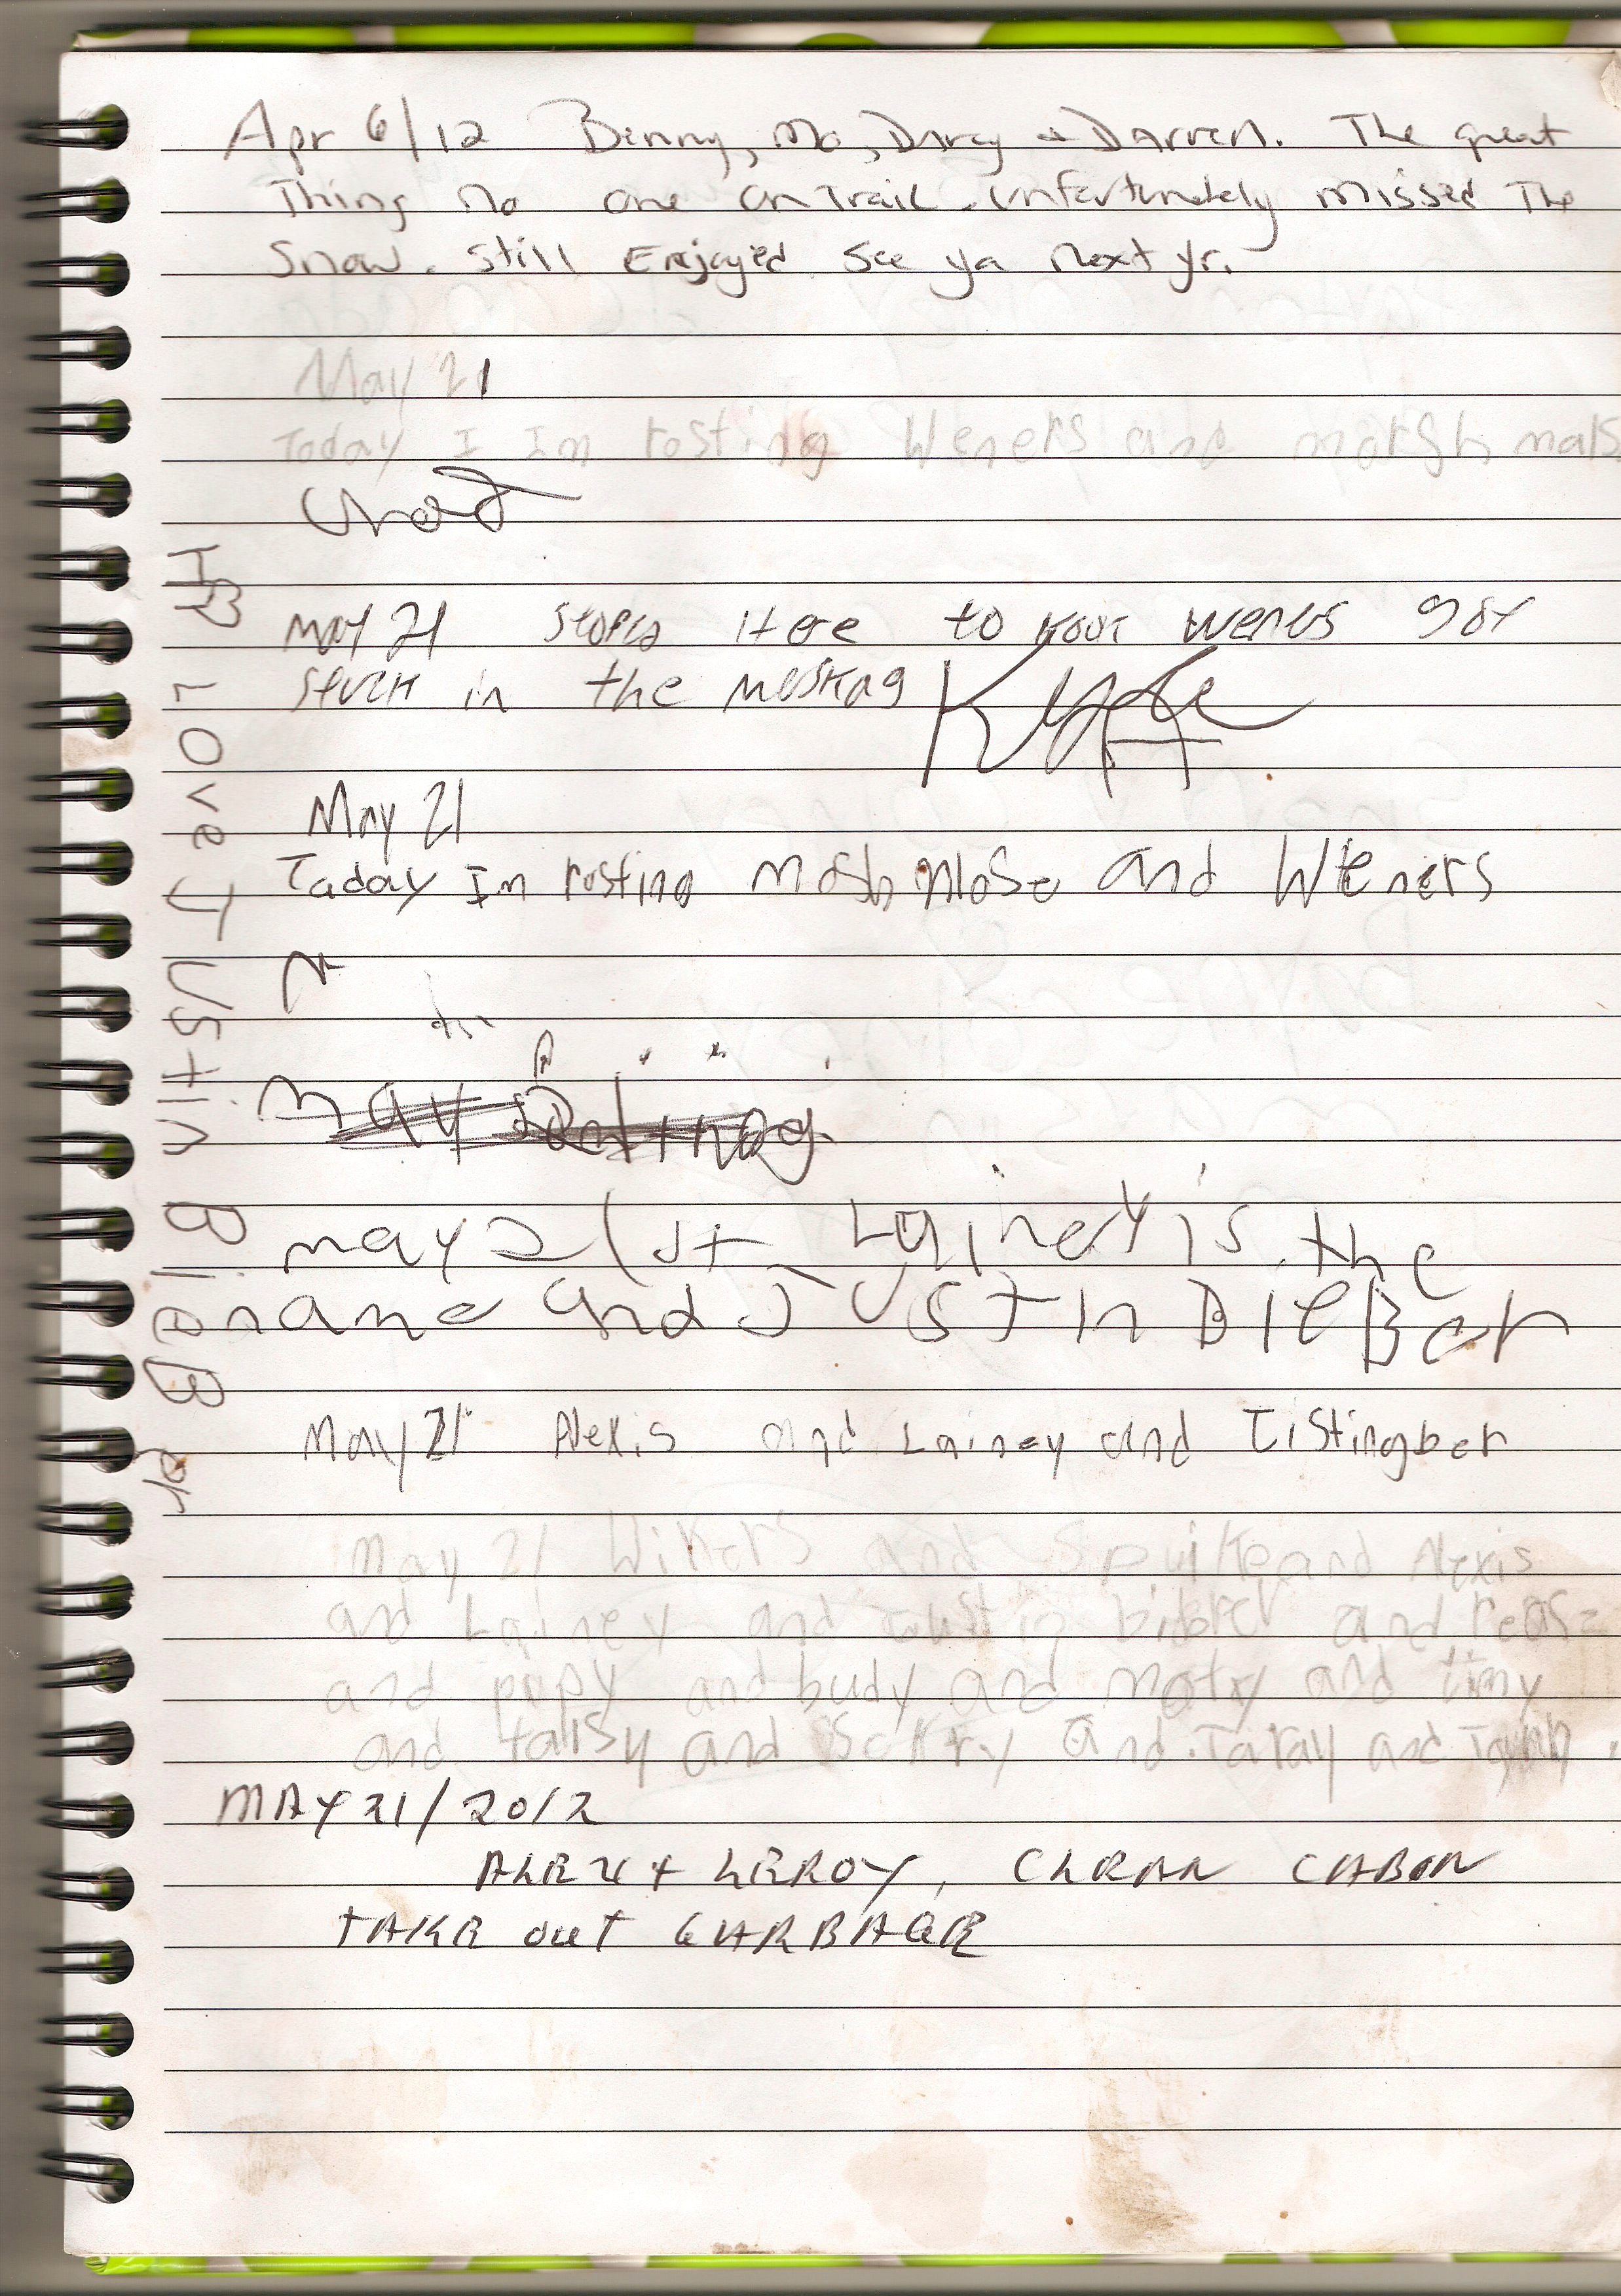 Apr 6/12 Benny, Mo, Darcy + Darren. The great
Thing no one on Trail. Unfortunately missed The
Snow. Still Enjoyed. See ya next yr.
May 21
Today I Im rosting Weners and marsh mals
May 21 Stoped Here to Weners got
stuck in the Muskag Kyle
May 21
Taday Im rosting mash mlose and Wieners
may
may 21st Lainey is the
name and JUSTIN BIEBer
May 21 Alexis and Lainey and Tistingber
May 21 Wikers and Spuike and Alexis
and Lainey and Justin bibber and
and popy and budy and and timy
and and and Taray and
MAY 21/2012
ALEX + LEROY, CLEAN CABIN
TAKE OUT GARBAGE
I LOVE JUStiN BieBer